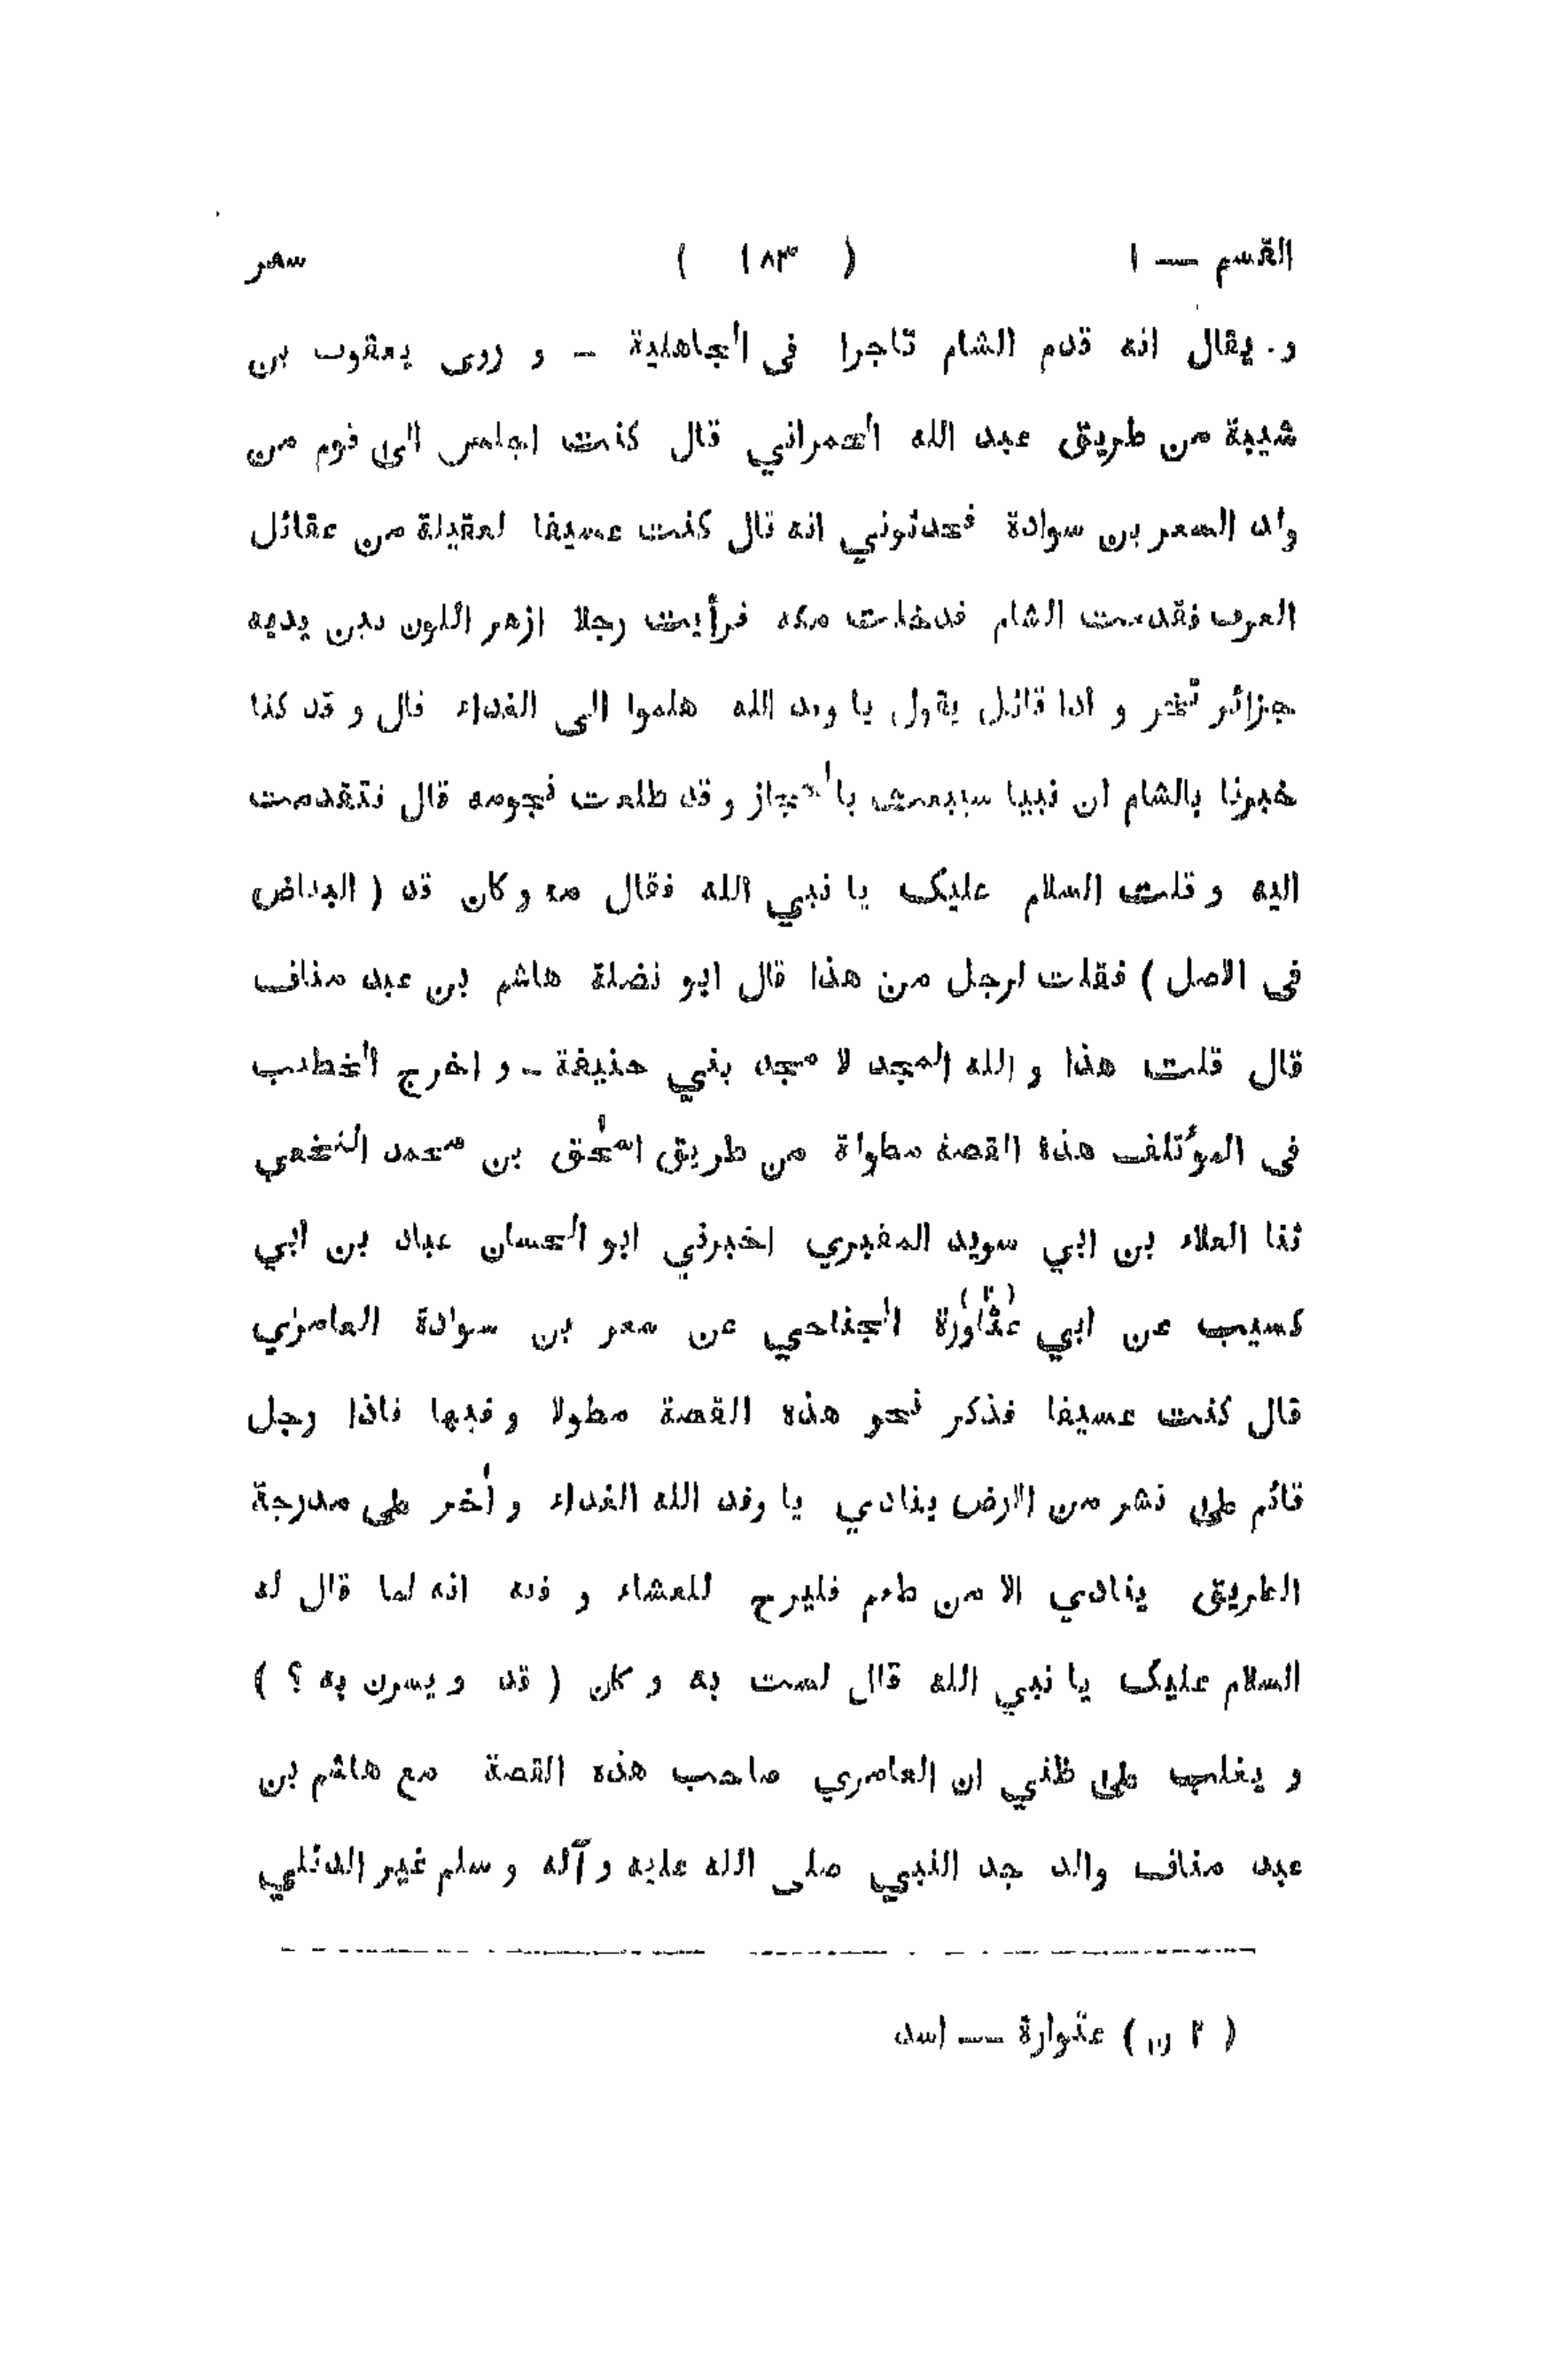 القسم — ١ ( ١٨٣ ) سعر
و يقال انه قدم الشام تاجرا فى الجاهلية - و روى يعقوب بن
شيبة من طريق عبد الله الحمراني قال كنت اجلس الى قوم من
ولد السعر بن سوادة فحدثوني انه قال كنت عسيفا لعقيلة من عقائل
العرب فقدمت الشام فدخلت مكه فرأيت رجلا ازهر اللون بين يديه
جزائر تنحر و اذا قائل يقول يا وفد الله هلموا الى الغداء قال و قد كنا
خبرنا بالشام ان نبيا سيبعث بالحجاز و قد طلعت نجومه قال فتقدمت
اليه و قلت السلام عليك يا نبي الله فقال مه و كان قد ( البياض
فى الاصل ) فقلت لرجل من هذا قال ابو نضلة هاشم بن عبد مناف
قال قلت هذا و الله المجد لا مجد بني حنيفة - و اخرج الخطيب
فى المؤتلف هذه القصة مطولة من طريق اسحٰق بن محمد النخعي
ثنا العلاء بن ابي سويد المنقبري اخبرني ابو الحسان عباد بن ابي
كسيب عن ابي عتاورة (٢) الجناحي عن سعر بن سوادة العامري
قال كنت عسيفا فذكر نحو هذه القصة مطولا و فيها فاذا رجل
قائم على نشز من الارض ينادي يا وفد الله الغداء و أخر على مدرجة
الطريق ينادي الا من طعم فليرح للعشاء و فيه انه لما قال له
السلام عليك يا نبي الله قال لست به و كان ( قد و يسرن به ؟ )
و يغلب على ظني ان العامري صاحب هذه القصة مع هاشم بن
عبد مناف والد جد النبي صلى الله عليه و آله و سلم غير الدئلي
( ٢ ن ) عتوارة — اسد